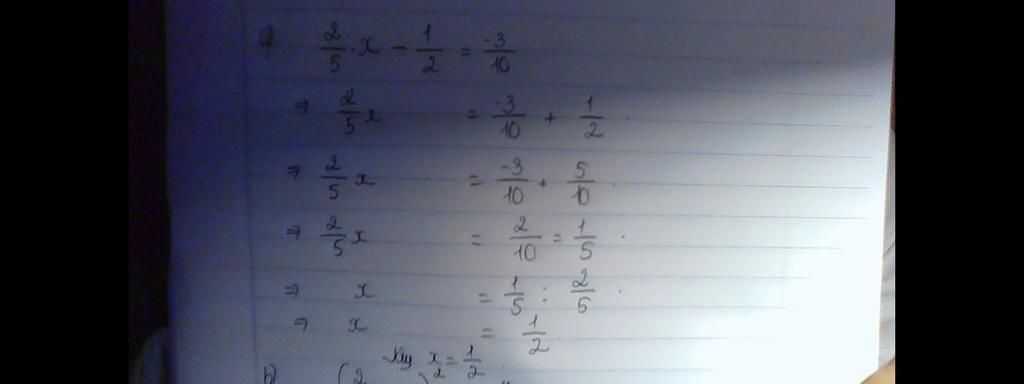 2/5 . x - 1/2 = -3/10
⇒ 2/5 x = -3/10 + 1/2
⇒ 2/5 x = -3/10 + 5/10
⇒ 2/5 x = 2/10 = 1/5
⇒ x = 1/5 : 2/5
⇒ x = 1/2
Vậy x = 1/2
b)